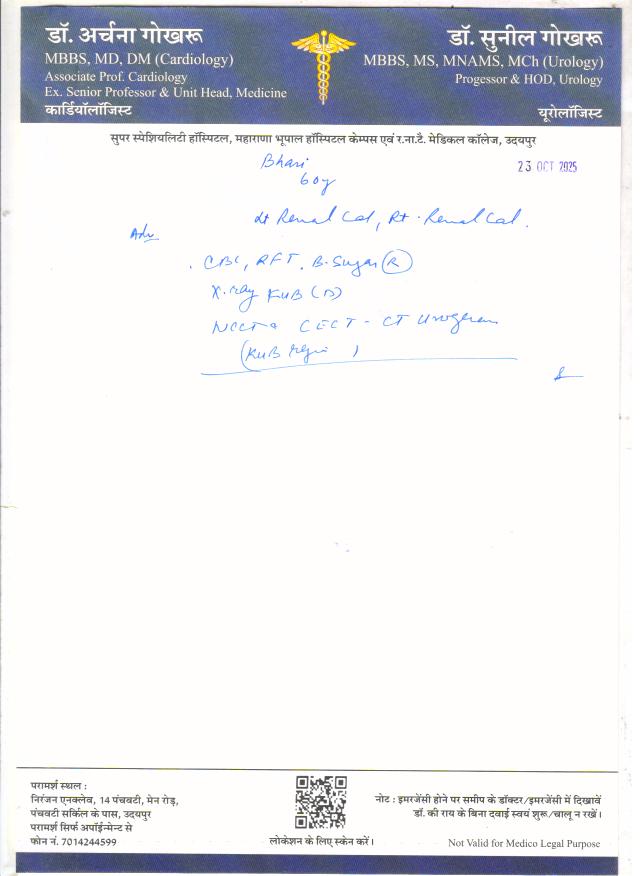 डॉ. अर्चना गोखरू
MBBS, MD, DM (Cardiology)
Associate Prof. Cardiology
Ex. Senior Professor & Unit Head, Medicine
कार्डियॉलॉजिस्ट
डॉ. सुनील गोखरू
MBBS, MS, MNAMS, MCh (Urology)
Progessor & HOD, Urology
यूरोलॉजिस्ट
सुपर स्पेशियलिटी हॉस्पिटल, महाराणा भूपाल हॉस्पिटल केम्पस एवं र.ना.टै. मेडिकल कॉलेज, उदयपुर
23 OCT 2025
60y
Lt Renal Cal, Rt. Renal Cal.
Adv
CBC, RFT, B. Sugar (R)
X.ray KUB (D)
NCCT & CECT - CT Urogram
(KUB region)
परामर्श स्थल :
निरंजन एनक्लेव, 14 पंचवटी, मेन रोड़,
पंचवटी सर्किल के पास, उदयपुर
परामर्श सिर्फ अपॉईन्मेन्ट से
फोन नं. 7014244599
लोकेशन के लिए स्केन करें।
नोट : इमरजेंसी होने पर समीप के डॉक्टर/इमरजेंसी में दिखावें
डॉ. की राय के बिना दवाई स्वयं शुरू/चालू न रखें।
Not Valid for Medico Legal Purpose